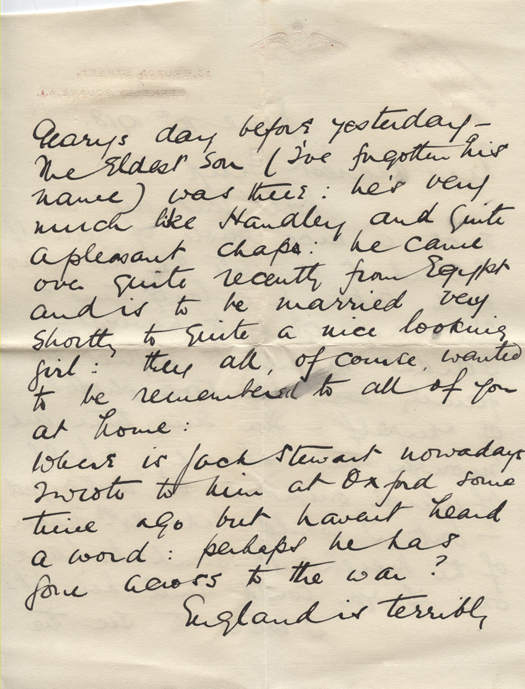 Gearys day before yesterday –
The Eldest Son (I've forgotten his
name) was there: he's very
much like Handley and quite
a pleasant chap: he came
over quite recently from Egypt
and is to be married very
shortly to quite a nice looking
girl: they all, of course, wanted
to be remembered to all of you
at home:
Where is Jack Stewart nowadays
I wrote to him at Oxford some
time ago but havent heard
a word: perhaps he has
gone across to the war?
England is terribly